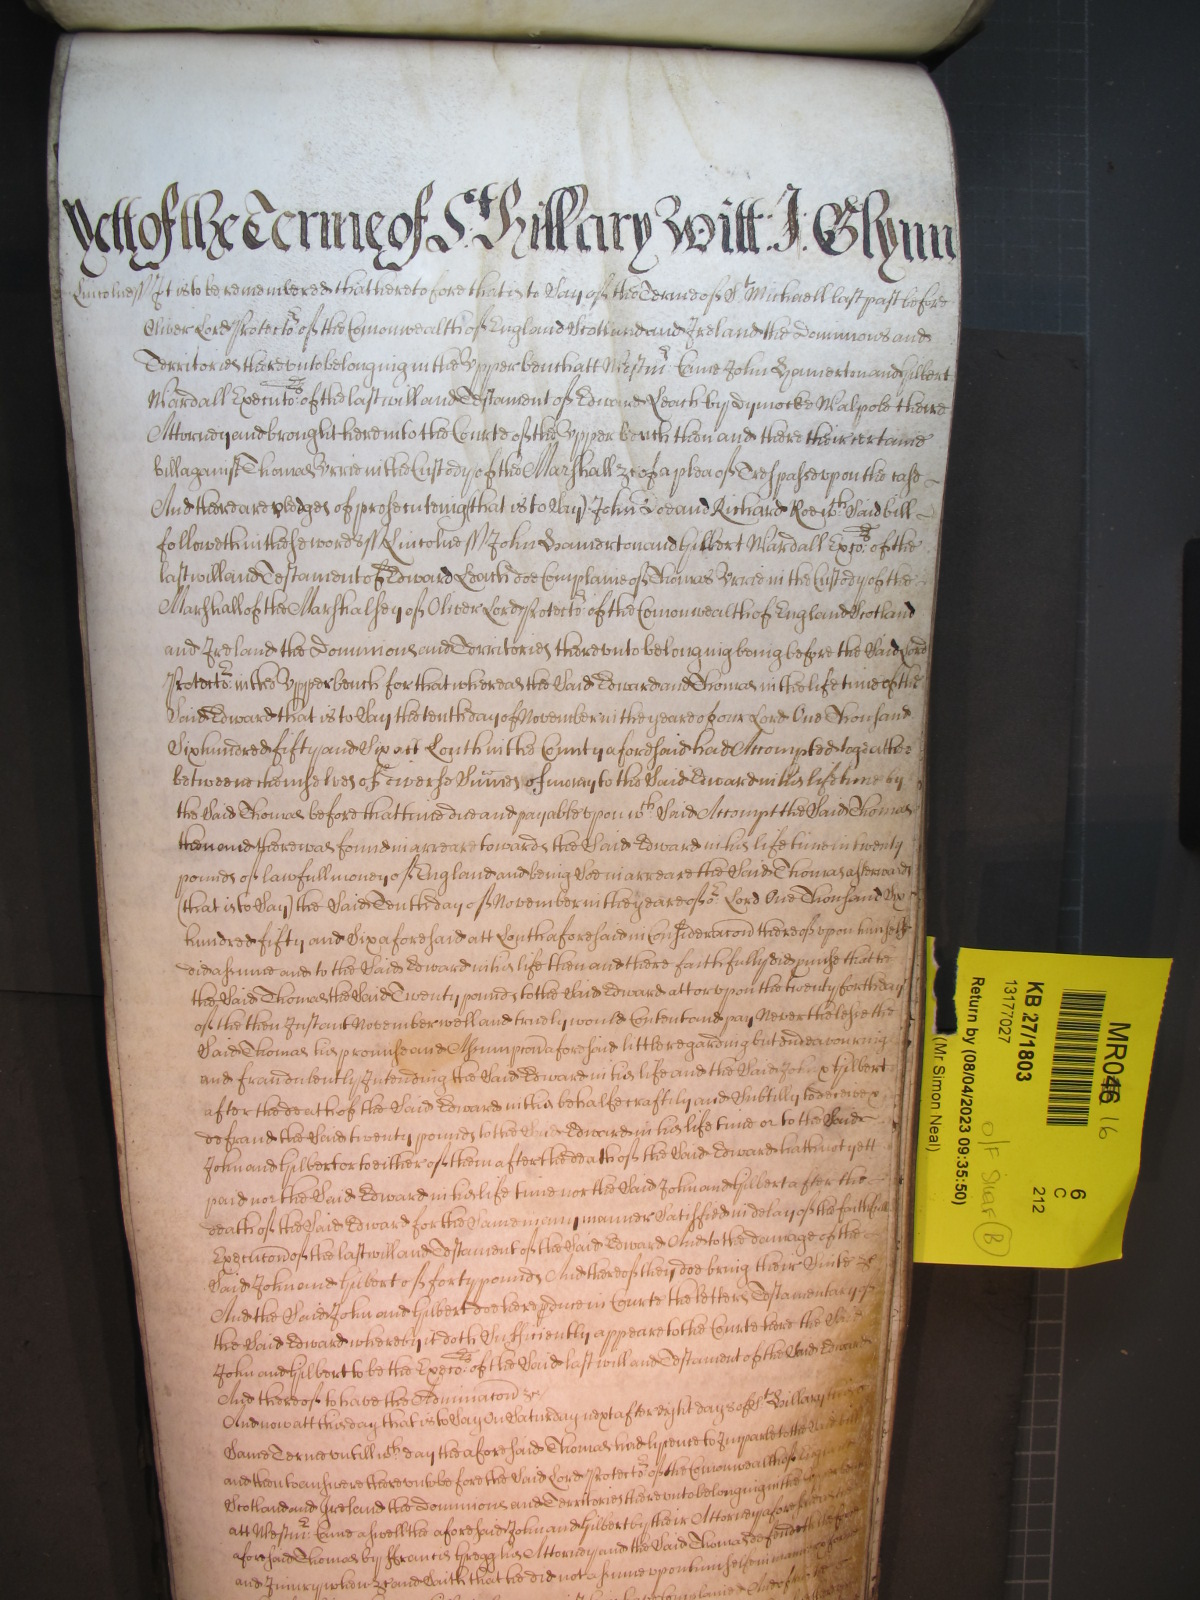 Yett of the Terme of St Hillary Witt: J: Glynn
Lincolne ss It is to be remembered that heretofore that is to say of the Terme of St Michaell last past before
Oliver Lord Protector of the Comonwealth of England Scotland and Ireland the Dominions and
Territories thereunto belonging in the Upper bench att Westmr Came John Hamerton and Gilbert
Mardall Executors of the last will and Testament of Edward Leach by Dymocke Walpole theire
Attorney and brought here into the Courte of the Upper bench then and there their certaine
bill against Thomas Urrie in the Custody of the Marshall &c of a plea of Trespasse upon the case
And there are pledges of prosecuteing (that is to say) John Doe and Richard Roe wch said bill
followeth in these words ss Lincolne ss John Hamerton and Gilbert Mardall Exectors of the
last will and Testament of Edward Leach doe Complaine of Thomas Urrie in the Custody of the
Marshall of the Marshalsey of Oliver Lord Protector of the Comonwealth of England Scotland
and Ireland the Dominions and Territories thereunto belonging being before the said Lord
Protector in the Upper bench for that whereas the said Edward and Thomas in the life time of the
said Edward that is to say the tenth day of November in the yeare of our Lord One Thousand
Six hundred fifty and Six att Louth in the County aforesaid had Accompted togeather
betweene themselves of diverse Summes of money to the said Edward in his life time by
the said Thomas before that time due and payable upon wch said Accompt the said Thomas
then and there was found in arreare towards the said Edward in his life time in twenty
pounds of lawfull money of England and being soe in arreare the said Thomas afterwards
(that is to say) the said Tenth day of November in the yeare of or Lord One Thousand Six
hundred fifty and Six aforesaid att Louth aforesaid in Consideracon thereof upon himselfe
did assume and to the said Edward in his life then and there faithfully did promise that he
the said Thomas the said Twenty pounds to the said Edward att or upon the twenty forth day
of the then Instant November well and truely would Content and pay Neverthelesse the
said Thomas his promise and Assumpcon aforesaid little regarding but endeavouring
and fraudulently Intending the said Edward in his life and the said John & Gilbert
after the death of the said Edward in this behalfe craftily and subtilly to deceive &
defraud the said twenty pounds to the said Edward in his life time or to the said
John and Gilbert or to either of them after the death of the said Edward hath not yett
paid nor the said Edward in his life time nor the said John and Gilbert after the
death of the said Edward for the same in any manner satisfied in delay of the faithfull
Execucon of the last will and Testament of the said Edward And to the damage of the
said John and Gilbert of forty pounds And thereof they doe bring their Suite &c
And the said John and Gilbert doe here produce in Courte the letters Testamentary of
the said Edward whereby it doth sufficiently appeare to the Courte here the said
John and Gilbert to be the Exectors of the said last will and Testament of the said Edward
And thereof to have the Adminacon &c
And now att this day that is to say On Saturday next after eight days of St Hillary this
same Terme untill wch day the aforesaid Thomas had lycence to Imparle to the said bill
and then to answere thereunto before the said Lord Protector of the Comonwealth of England
Scotland and Ireland the Dominions and Territories thereunto belonging in the Upper bench
att Westmr Came aswell the aforesaid John and Gilbert by their Attorney aforesaid as the
aforesaid Thomas by Francis Gregg his Attorney and the said Thomas defendeth the force
and Injury when &c and saith that he did not assume upon himselfe in manner
MR046 16
6
C
212
KB 27/1803
13177027
Return by (08/04/2023 09:35:50)
(Mr Simon Neal)
B